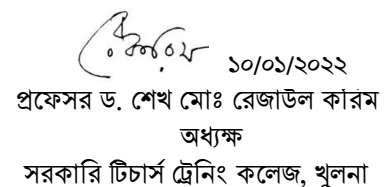 ১০/০১/২০২২
প্রফেসর ড. শেখ মোঃ রেজাউল করিম
অধ্যক্ষ
সরকারি টিচার্স ট্রেনিং কলেজ, খুলনা